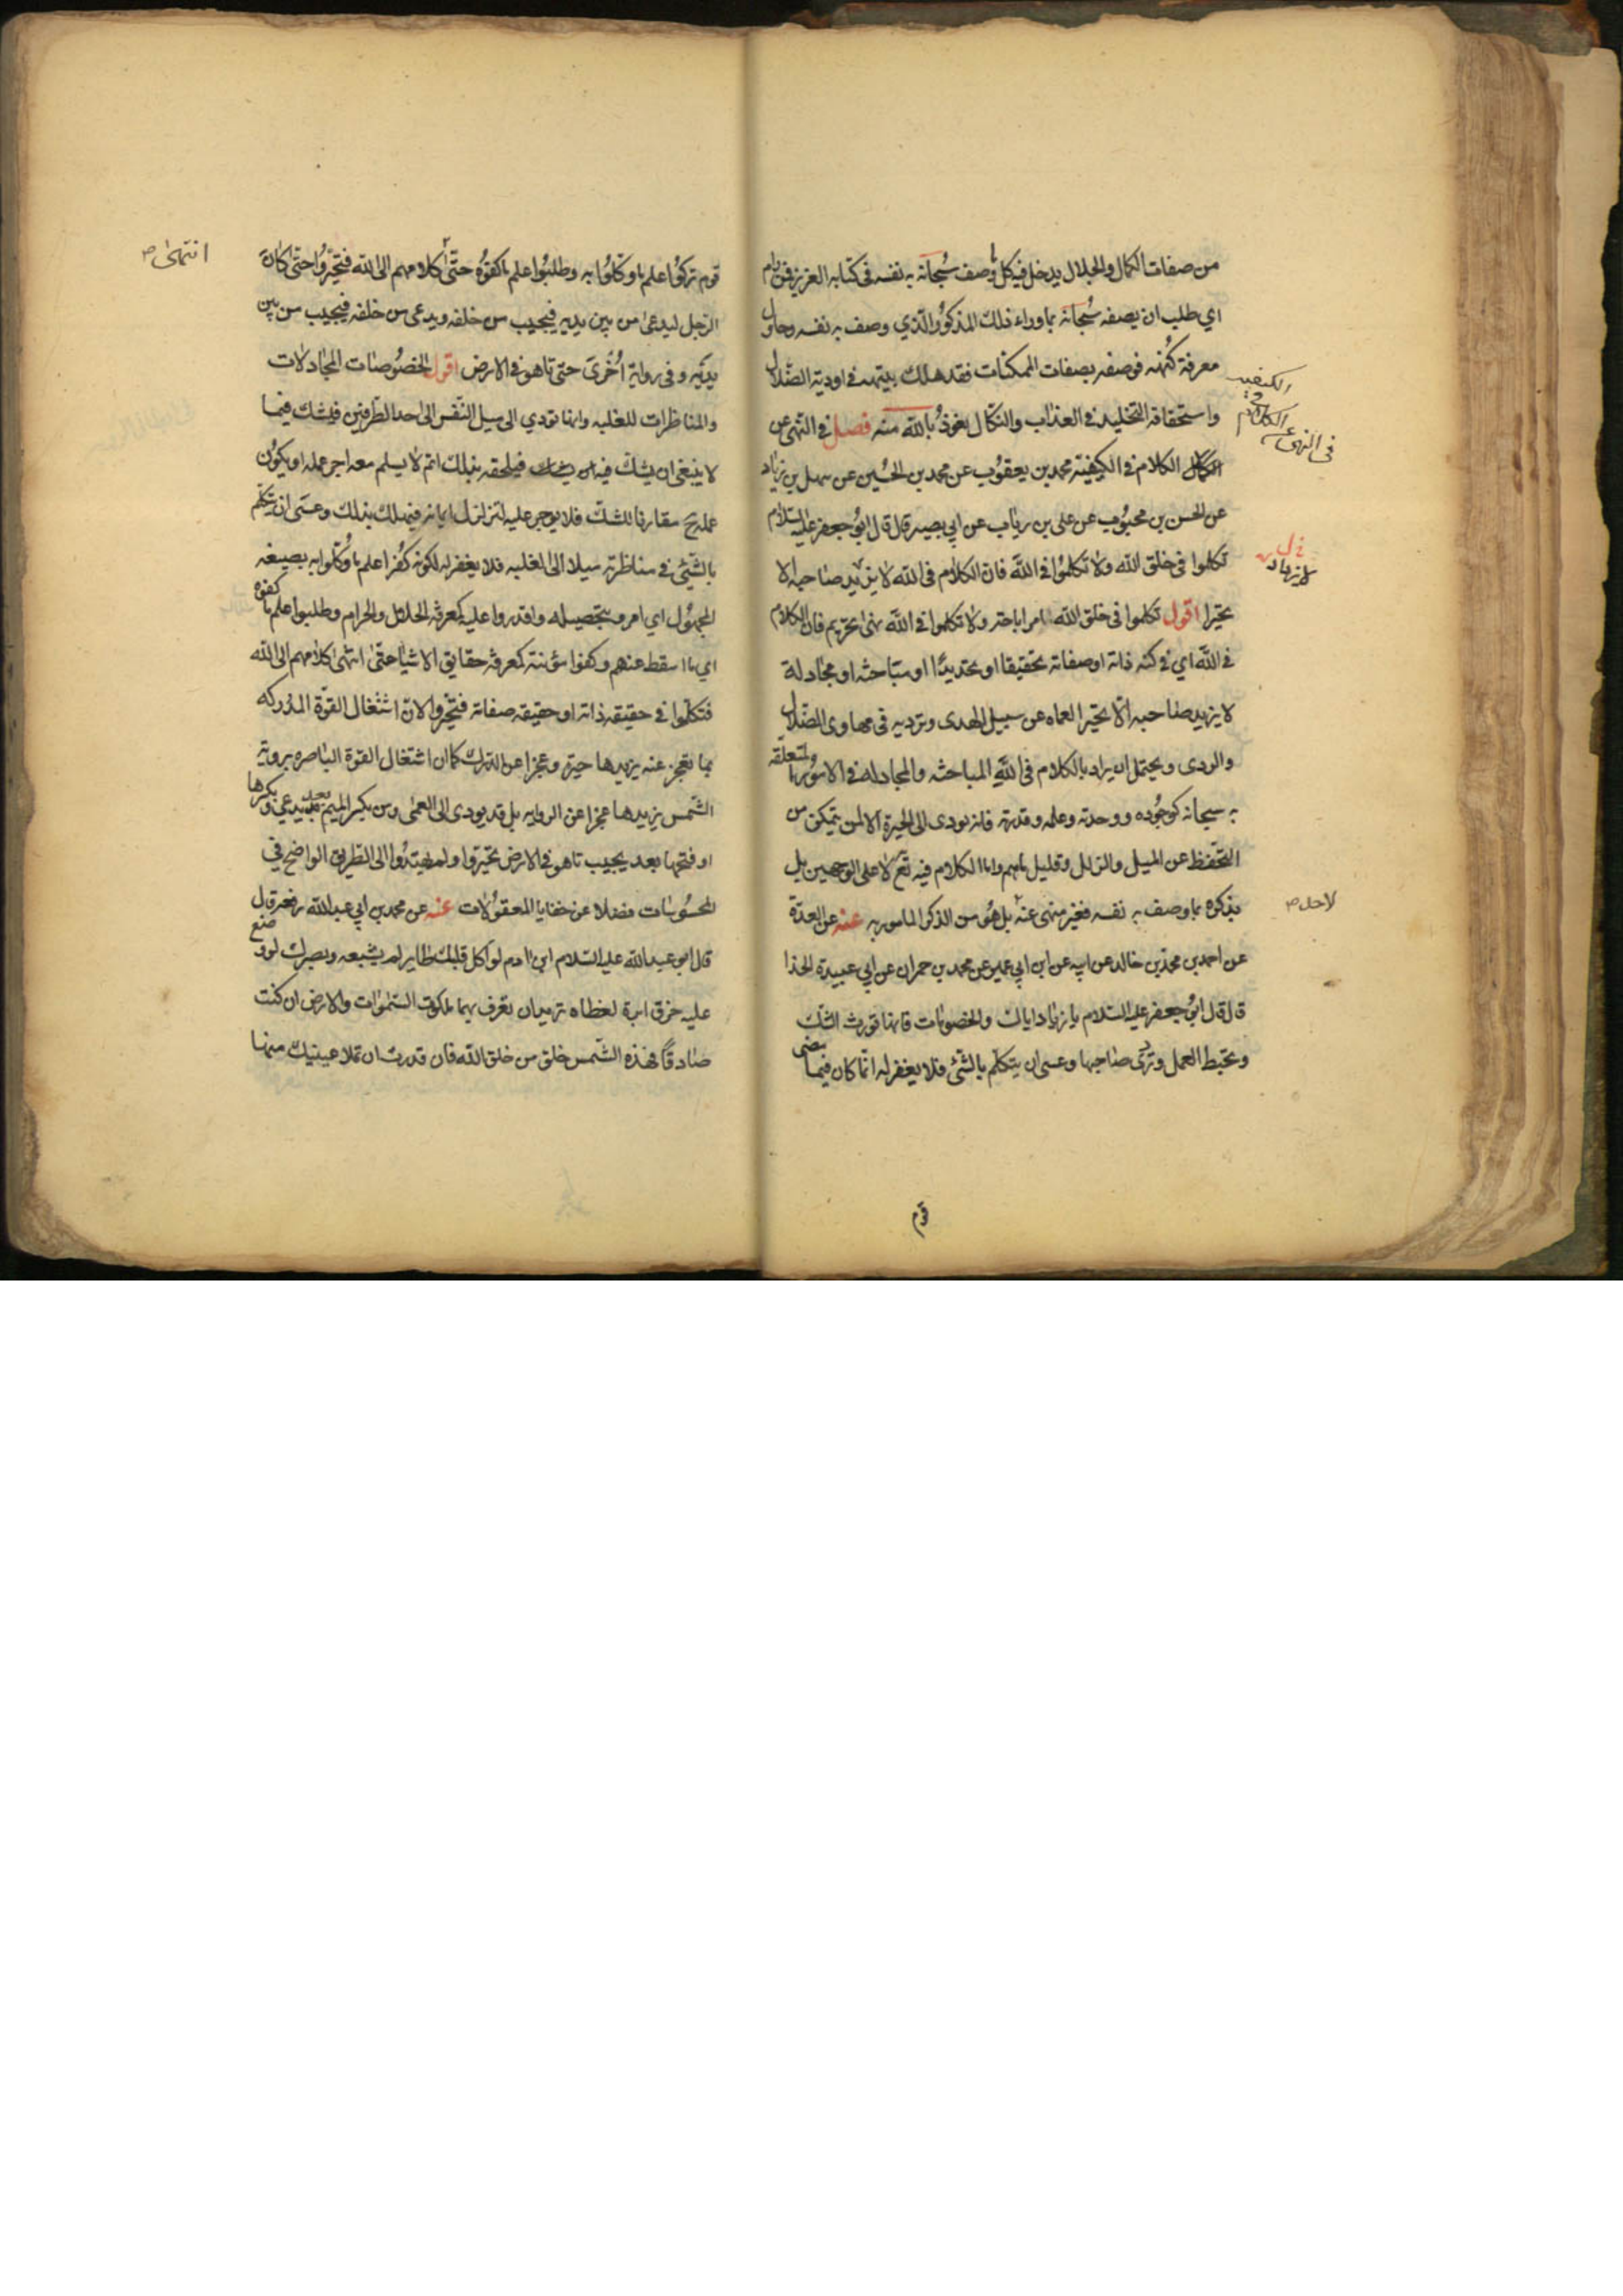 من صفات الكمال والجلال يدخل فيه كل ما وصف سُبحانه به نفسه في كتابه العزيز فمن رام
اي طلب ان يصفه سُبحانه بماوراء ذلك المذكور الّذي وصف به نفسه وحاول
معرفة كُنهه فوصفه بصفات الممكنات فقد هلك بيتهه في اودية الضّلال
واستحقاقه التخليد في العذاب والنكال نعوذُ بالله منه فصل في النّهى عن
الكلام في الكيفيّة محمد بن يعقوُب عن محمد بن الحُسين عن سهل بن زياد
عن الحسن بن محبوُب عن على بن رياب عن ابي بصير قال قال ابوُ جعفر عليه السّلام
تكلموا في خلق الله ولا تكلموُا في الله فان الكلام في الله لا يزيد صاحبه الا
تحيّرا اقول تكلموا في خلق الله امر اباحة ولا تكلموا في الله نهى تحريم فان الكلام
في الله اي في كنه ذاته اوصفاته تحقيقا او تحديدًا او مباحثه او مجادلة
لا يزيد صاحبه الّا تحيّر العماه عن سبيل الهدى وترديه في مهاوى الضّلال
والردى ويحتمل ان يراد بالكلام في الله المباحثه والمجادله في الاموُر المتعلّقه
به سبحانه كوجوُده ووحدته وعلمه وقدرته فانه يودى الى الحيرة الا لمن يتمكن من
التحّفظ عن الميل والزلل وقليل ماهم واما الكلام فيه تع لا على الوجهين بل
بذكره بما وصف به نفسه فغير منهى عنه بل هُو من الذكر المامور به عنه عن العدّة
عن احمد بن محمد بن خالد عن ابيه عن ابن ابي عمير عن محمد بن حمران عن ابي عبيدة الحذا
قال قال ابوُ جعفر عليه السّلام يا زياد اياك والخصومات فانها تورث الشّك
وتحبط العمل وتردى صاحبها وعسى ان يتكلّم بالشّئ فلا يغفر له انّه كان فيما مضى
الكيفيه
الكلام في
في النهى عن
لا يزداد
لاحله ص
قوم
قوم تركوُا علم ما وكّلوُا به وطلبوُا علم ما كفوُه حتّى كلامهم الى الله فتحيّروُا حتى كانَ
الرّجل ليدعىٰ من بين يديه فيجيب من خلفه ويدعى من خلفه فيجيب من بين
يديه وفى رواية اُخرىَ حتى تاهو في الارض اقول الخصُوصات المجادلات
والمناظرات للغلبه وانها تودي الى ميل النّفس الى احد الطّرفين فيشك فيما
لا ينبغى ان يشكّ فيه فيلحقه بذلك اثم لا يسلم معه اجر عمله او يكوُن
عمله ح مقارنا للشكّ فلا يوجر عليه لتزلزل ايمانه فيهلك بذلك وعسَى ان يتكلّم
بالشّئ في مناظرته ميلا الى الغلبه فلا يغفر له لكونه كُفرا علم ما وُكّلوا به بصيغه
المجهوُل اي امروُ بتحصيله واقدروا عليه كمعرفه الحلال والحرام وطلبوا علم ما كفوه
اي ما اسقط عنهم وكفوا مؤنته كمعرفة حقايق الاشيا حتىٰ انتهى كلامهم الى الله
فتكلّموا في حقيقه ذاته او حقيقه صفاته فتحيّروا لانّ اشتغال القوّة المدُركه
بما تعجز عنه يزيدها حيرة وعجزا عن الدّرك كما ان اشتغال القوة الباصره بروية
الشّمس يزيدها عجزا عن الروايه بل قد يودى الى العمى ومن بكسر الميم بعد يدعى وبكسرها
او فتحها بعد يجيب تاهو في الارض تحيّروا ولم يهتدُوا الى الطّريق الواضح في
المحسوُسات فضلا عن خفايا المعقوُلات عنه عن محمد بن ابي عبد الله رفعه قال
قال ابو عبد الله عليه السّلام ابن ادم لو اكل قلبك طاير لم يشبعه وبصرك لو وضع
عليه خرق ابرة لغطاه تريد ان تعرف بهما ملكوت السّموات والارض ان كنت
صادقًا فهذه الشّمس خلق من خلق الله فان قدرت ان تملا عينيك منها
انتهىٰ ص